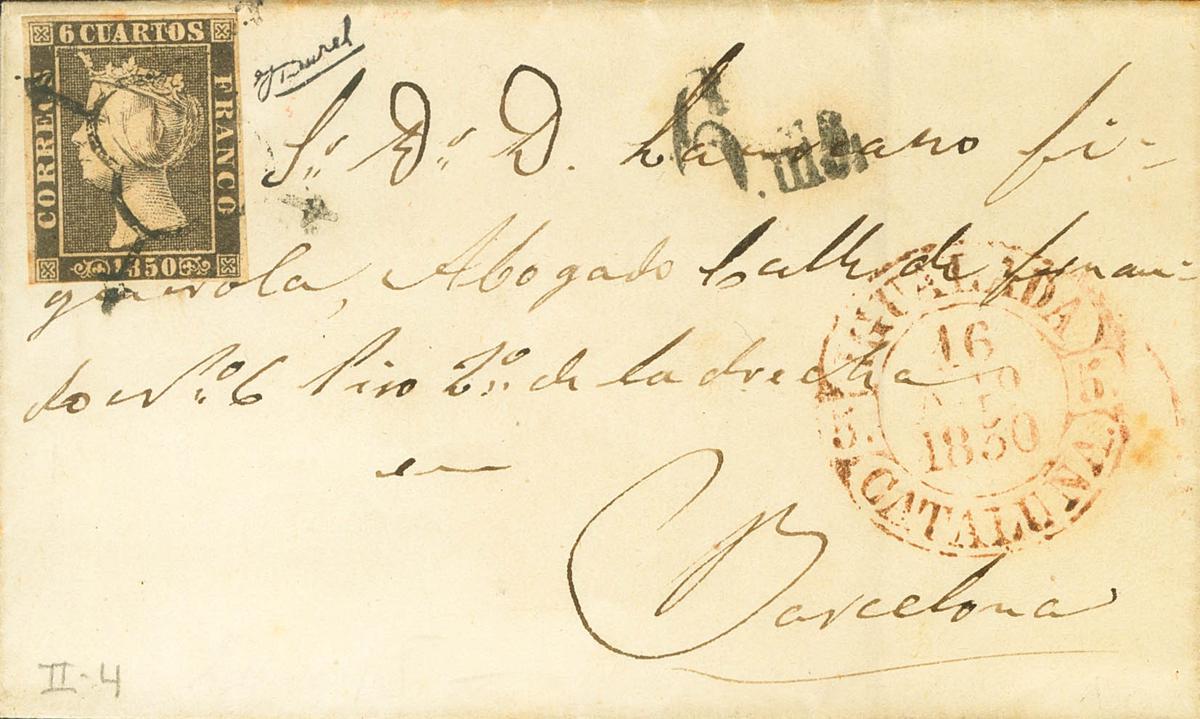 6 CUARTOS
CORREOS
FRANCO
1850
Sr. Dn. D. Lamberto Fi-
guerola, Abogado Calle de Fernan-
do Nº. 6 Piso 2º. de la drecha
en
Barcelona
6
IGUALADA
5. 5.
16
1850
CATALUÑA
II-4